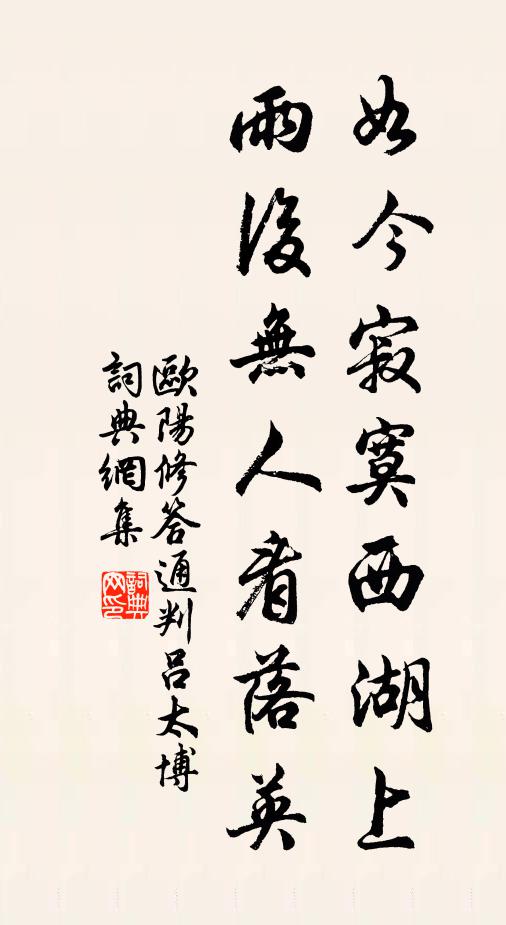 如今寂寞西湖上
雨後無人看落英
歐陽修答通判呂太博
詞典網集
詞典网印